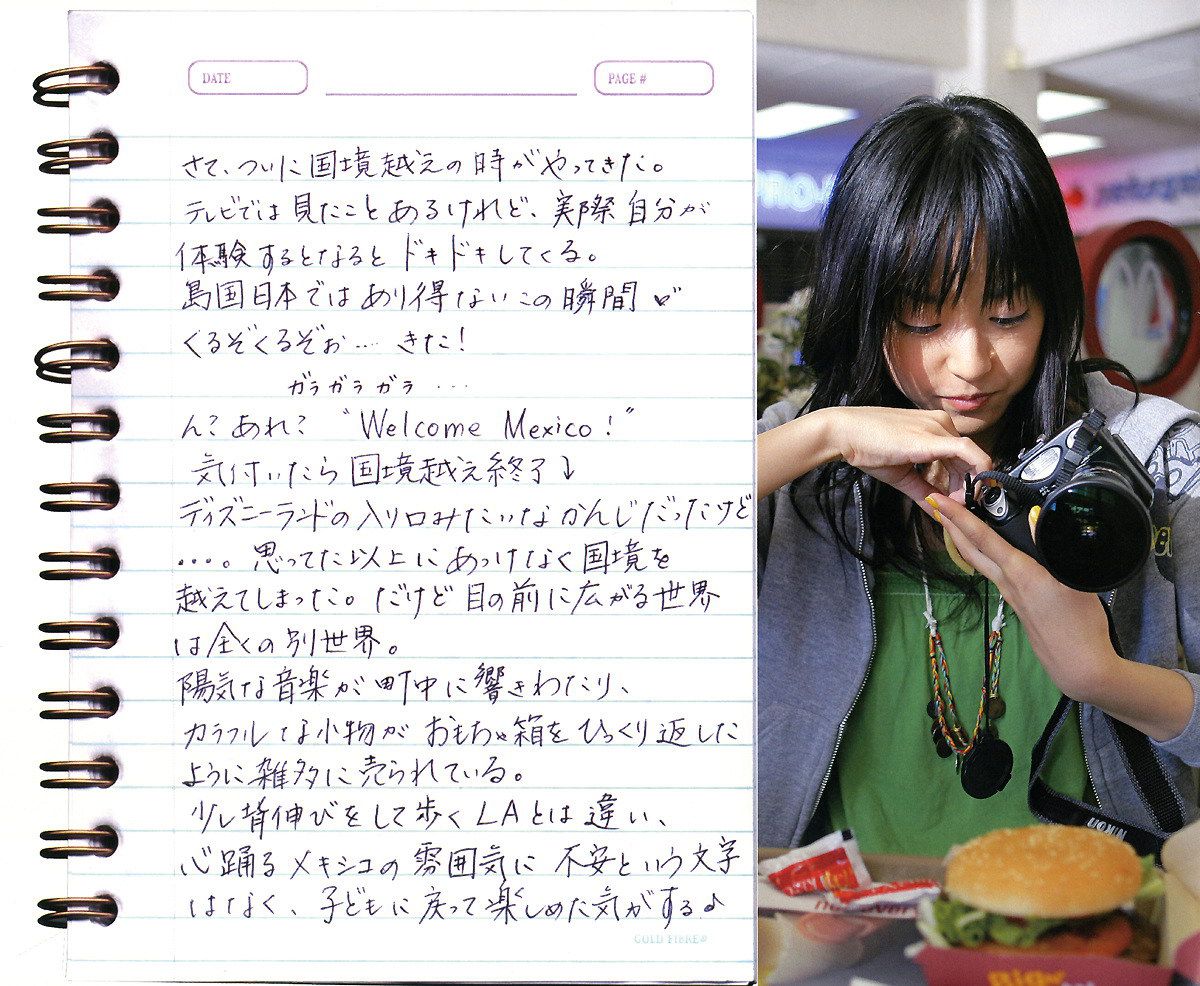 DATE
PAGE #
さて、ついに国境越えの時がやってきた。
テレビでは見たことあるけれど、実際自分が
体験するとなるとドキドキしてくる。
島国日本ではあり得ないこの瞬間♡
くるぞくるぞぉ…. きた!
ガラガラガラ ...
ん?あれ? “Welcome Mexico!”
気付いたら国境越え終了↓
ディズニーランドの入り口みたいなかんじだったけど
・・・。思ってた以上にあっけなく国境を
越えてしまった。だけど目の前に広がる世界
は全くの別世界。
陽気な音楽が町中に響きわたり、
カラフルな小物がおもちゃ箱をひっくり返した
ように雑多に売られている。
少し背伸びをして歩くLAとは違い、
心踊るメキシコの雰囲気に不安という文字
はなく、子どもに戻って楽しめた気がする♪
GOLD FIBRE®
NIKON